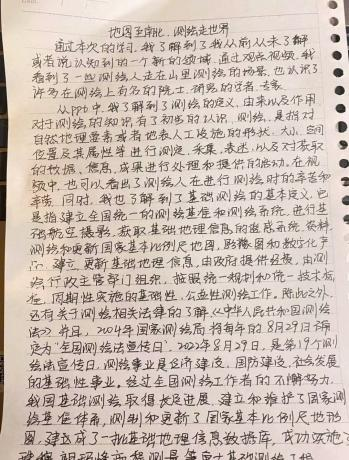 地图至南北,测绘走世界
通过本次的学习,我了解到了我从前从未了解
或者说认知到的一个新的领域,通过观看视频,我
看到了一些测绘人走在山里测绘的场景,也认识了
许多在测绘上有名的院士、研究的学者、专家。
从ppt中,我了解到了测绘的定义、由来以及作用
对于测绘的知识有了初步的认识,测绘,是指对
自然地理要素或者地表人工设施的形状、大小、空间
位置及其属性等进行测定、采集、表述,以及对获取
的数据、信息、成果进行处理和提供的活动。在视
频中,也可以看出了测绘人在进行测绘时的辛苦和
辛劳。同时,我也了解到了基础测绘的基本定义,它
是指建立全国统一的测绘基准和测绘系统,进行基
础航空摄影,获取基础地理信息的遥感系统、资料,
测绘和更新国家基本比例尺地图、影像图和数字化产
品,建立、更新基础地理信息,由政府提供经费,由测
绘行政主管部门组织,按照统一规划和统一技术标
准,周期性实施的基础性、公益性测绘工作。除此之外,
还有关于测绘相关法律的了解,《中华人民共和国测绘
法》并且,2004年国家测绘局将每年的8月29日确
定为"全国测绘法宣传日",2022年8月29日,是第19个测
绘法宣传日,测绘事业是经济建设、国防建设、社会发展
的基础性事业。经过全国测绘工作者的不懈努力,
我国基础测绘取得长足进展,建立和维护了国家测
绘基准体系,测制和更新了国家基本比例尺地形
图,建立成了一批基础地理信息数据库,成功实施了